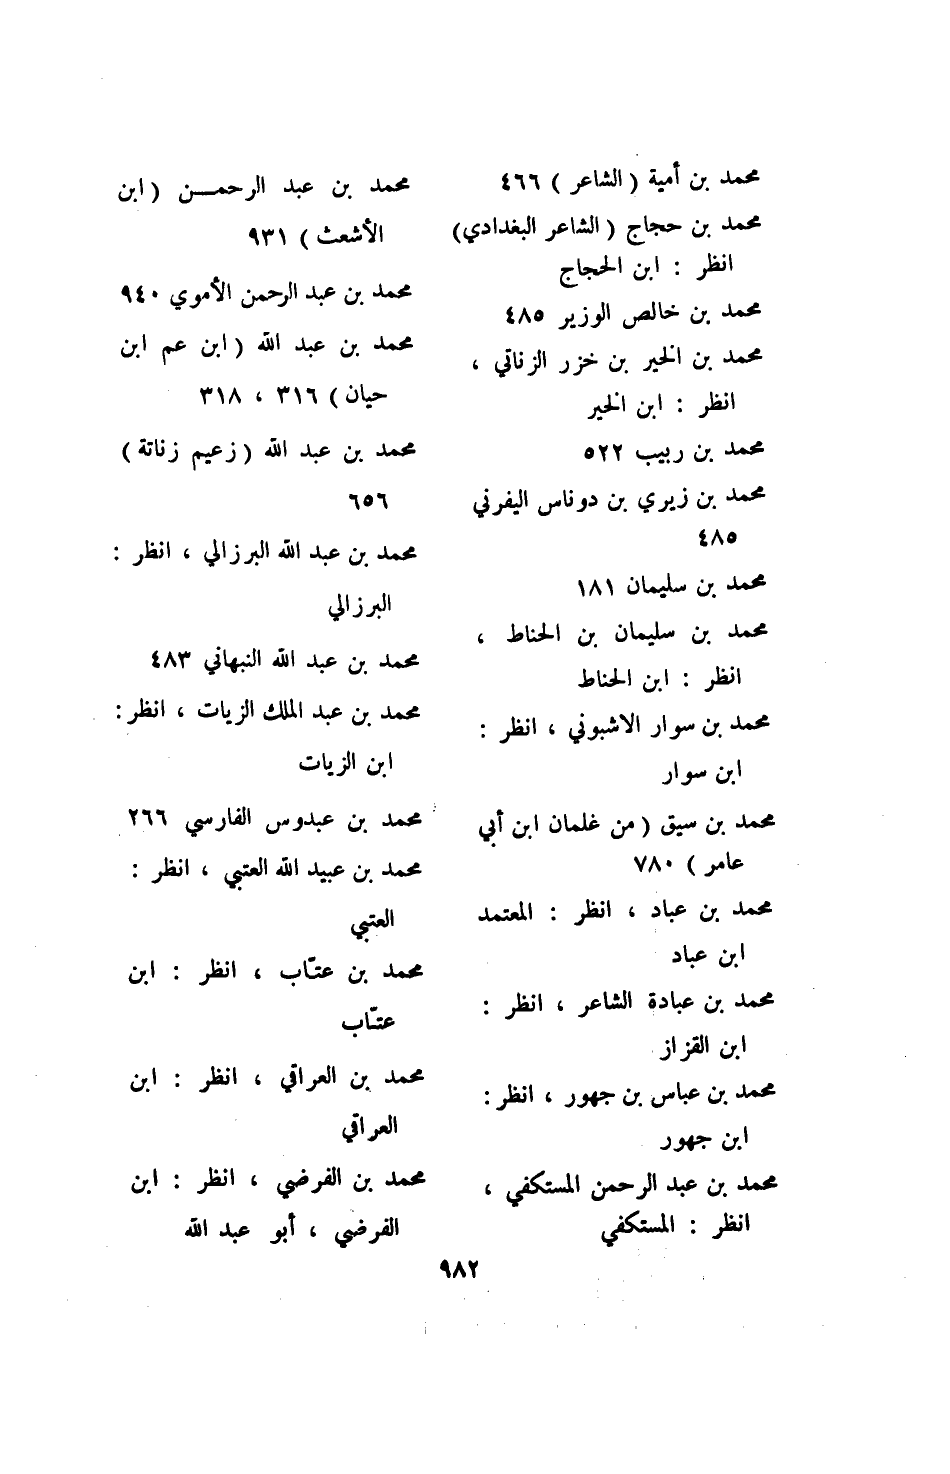 محمد بن أمية ( الشاعر ) ٤٦٦
محمد بن حجاج ( الشاعر البغدادي )
انظر : ابن الحجاج
محمد بن خالص الوزير ٤٨٥
محمد بن الخير بن خزر الزناتي ،
انظر : ابن الخير
محمد بن ربيب ٥٢٢
محمد بن زيري بن دوناس اليفرني
٤٨٥
محمد بن سليمان ١٨١
محمد بن سليمان بن الحناط ،
انظر : ابن الحناط
محمد بن سوار الاشبوني ، انظر :
ابن سوار
محمد بن سيق ( من غلمان ابن أبي
عامر ) ٧٨٠
محمد بن عباد ، انظر : المعتمد
ابن عباد
محمد بن عبادة الشاعر ، انظر :
ابن القزاز
محمد بن عباس بن جهور ، انظر :
ابن جهور
محمد بن عبد الرحمن المستكفي ،
انظر : المستكفي
محمد بن عبد الرحمــن ( ابن
الأشعث ) ٩٣١
محمد بن عبد الرحمن الأموي ٩٤٠
محمد بن عبد الله ( ابن عم ابن
حيان ) ٣١٦ ، ٣١٨
محمد بن عبد الله ( زعيم زناتة )
٦٥٦
محمد بن عبد الله البرزالي ، انظر :
البرزالي
محمد بن عبد الله النبهاني ٤٨٣
محمد بن عبد الملك الزيات ، انظر :
ابن الزيات
محمد بن عبدوس الفارسي ٢٦٦
محمد بن عبيد الله العتبي ، انظر :
العتبي
محمد بن عتّاب ، انظر : ابن
عتّاب
محمد بن العراقي ، انظر : ابن
العراقي
محمد بن الفرضي ، انظر : ابن
الفرضي ، أبو عبد الله
٩٨٢